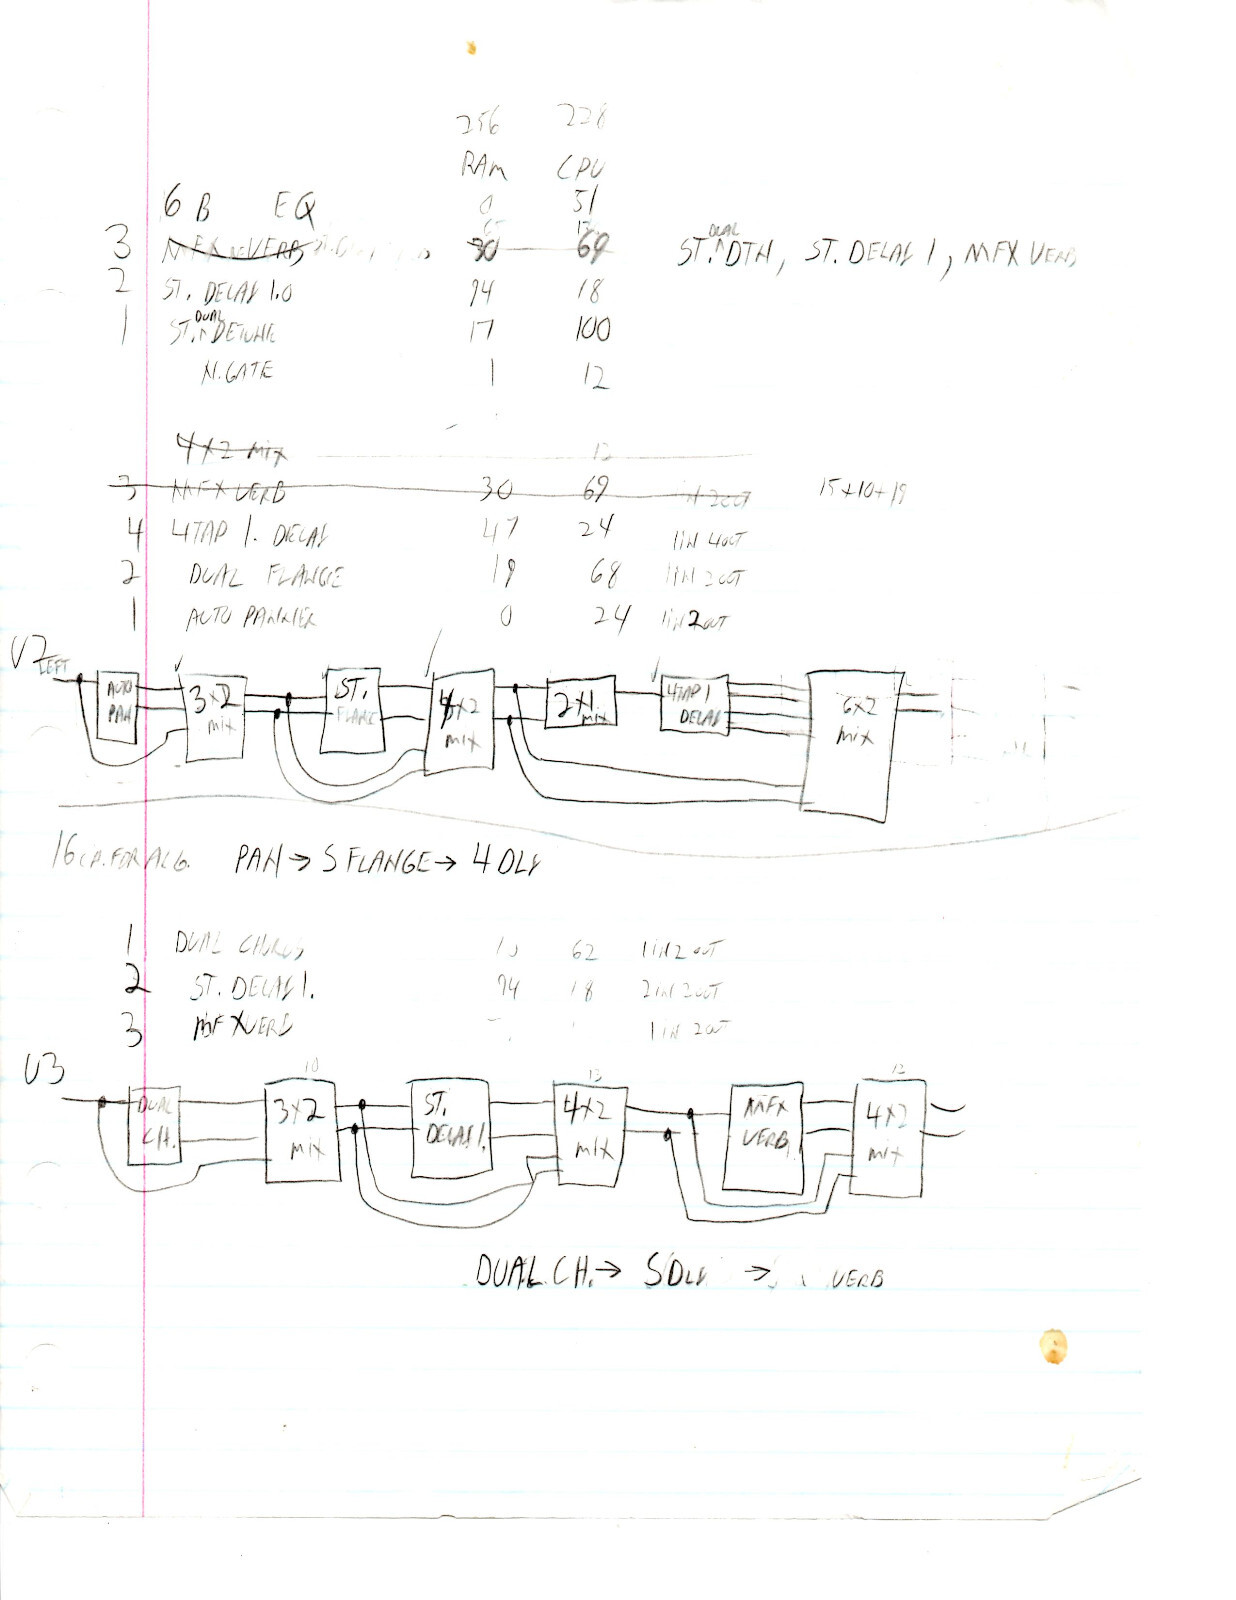 256 228
RAM CPU
6 B EQ 0 51
3 MFX VERB 30 69 ST. DUAL DTN, ST. DELAY 1, MFX VERB
2 ST. DELAY 1.0 94 18
1 ST. DUAL DETUNE 17 100
N.GATE 1 12
4X2 MIX 12
3 MFX VERB 30 69 2OUT 15+10+19
4 4TAP 1. DELAY 47 24 1IN 4OUT
2 DUAL FLANGE 19 68 1IN 2OUT
1 AUTO PANNER 0 24 1IN 2OUT
V2 LEFT
AUTO PAN
3X2 MIX
ST. FLANG
X2 MIX
2X1 MIX
4TAP 1 DELAY
6X2 MIX
16 FOR ALG. PAN → S FLANGE → 4 DLY
1 DUAL CHORUS 10 62 1IN 2OUT
2 ST. DELAY 1. 94 18 2IN 2OUT
3 MFX VERB 1IN 2OUT
V3
DUAL CH.
10
3X2 MIX
ST. DELAY 1.
13
4X2 MIX
MFX VERB
12
4X2 MIX
DUAL CH. → S DLY → VERB